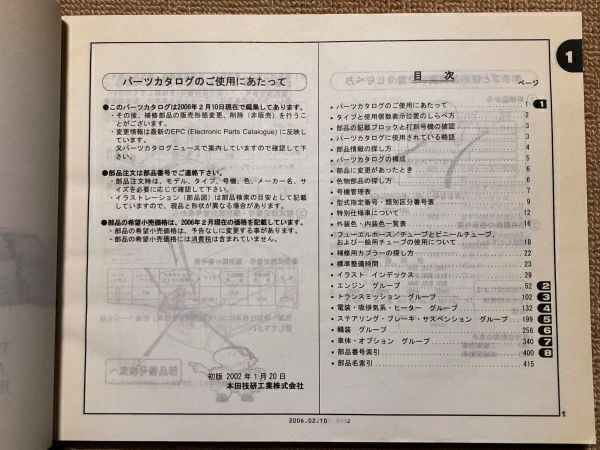 パーツカタログのご使用にあたって
●このパーツカタログは2006年2月10日現在で編集してあります。
・その後、補修部品の販売形態変更、削除(非販売)を行うことがございます。
・変更情報は最新のEPC (Electronic Parts Catalogue) に反映しています。
又パーツカタログニュースで案内していますので確認して下さい。
●部品注文は部品番号でご連絡下さい。
・部品注文時は、モデル、タイプ、号機、色、メーカー名、サイズを必要に応じて確認して下さい。
・イラストレーション(部品図)は部品検索を目的として記載していますので、現品と形状が異なる場合があります。
●部品の希望小売価格は、2006年2月現在の価格を記載しています。
・部品の希望小売価格は、予告なしに変更する事があります。
・部品の希望小売価格には消費税は含まれていません。
初版 2002年1月20日
本田技研工業株式会社
目 次
ページ
・パーツカタログのご使用にあたって 1
・タイプと使用個数表示位置のしらべ方 2
・部品の記載ブロックと打刻号機の確認 3
・パーツカタログに使用されている略語 3
・部品情報の探し方 4
・パーツカタログの構成 5
・部品に変更があったとき 6
・色物部品の探し方 6
・号機管理表 7
・型式指定番号・類別区分番号表 9
・特別仕様車について 12
・外装色・内装色一覧表 16
・フューエルホース/チューブとビニールチューブ、
および一般用チューブの使用について 18
・補修用カプラーの探し方 22
・標準整備時間 23
・イラスト インデックス 29
・エンジン グループ 52 2
・トランスミッション グループ 102 3
・電装・吸排気系・ヒーター グループ 132 4
・ステアリング・ブレーキ・サスペンション グループ 199 5
・艤装 グループ 256 6
・車体・オプション グループ 340 7
・部品番号索引 400 8
・部品名索引 415
1
1
2006.02.10